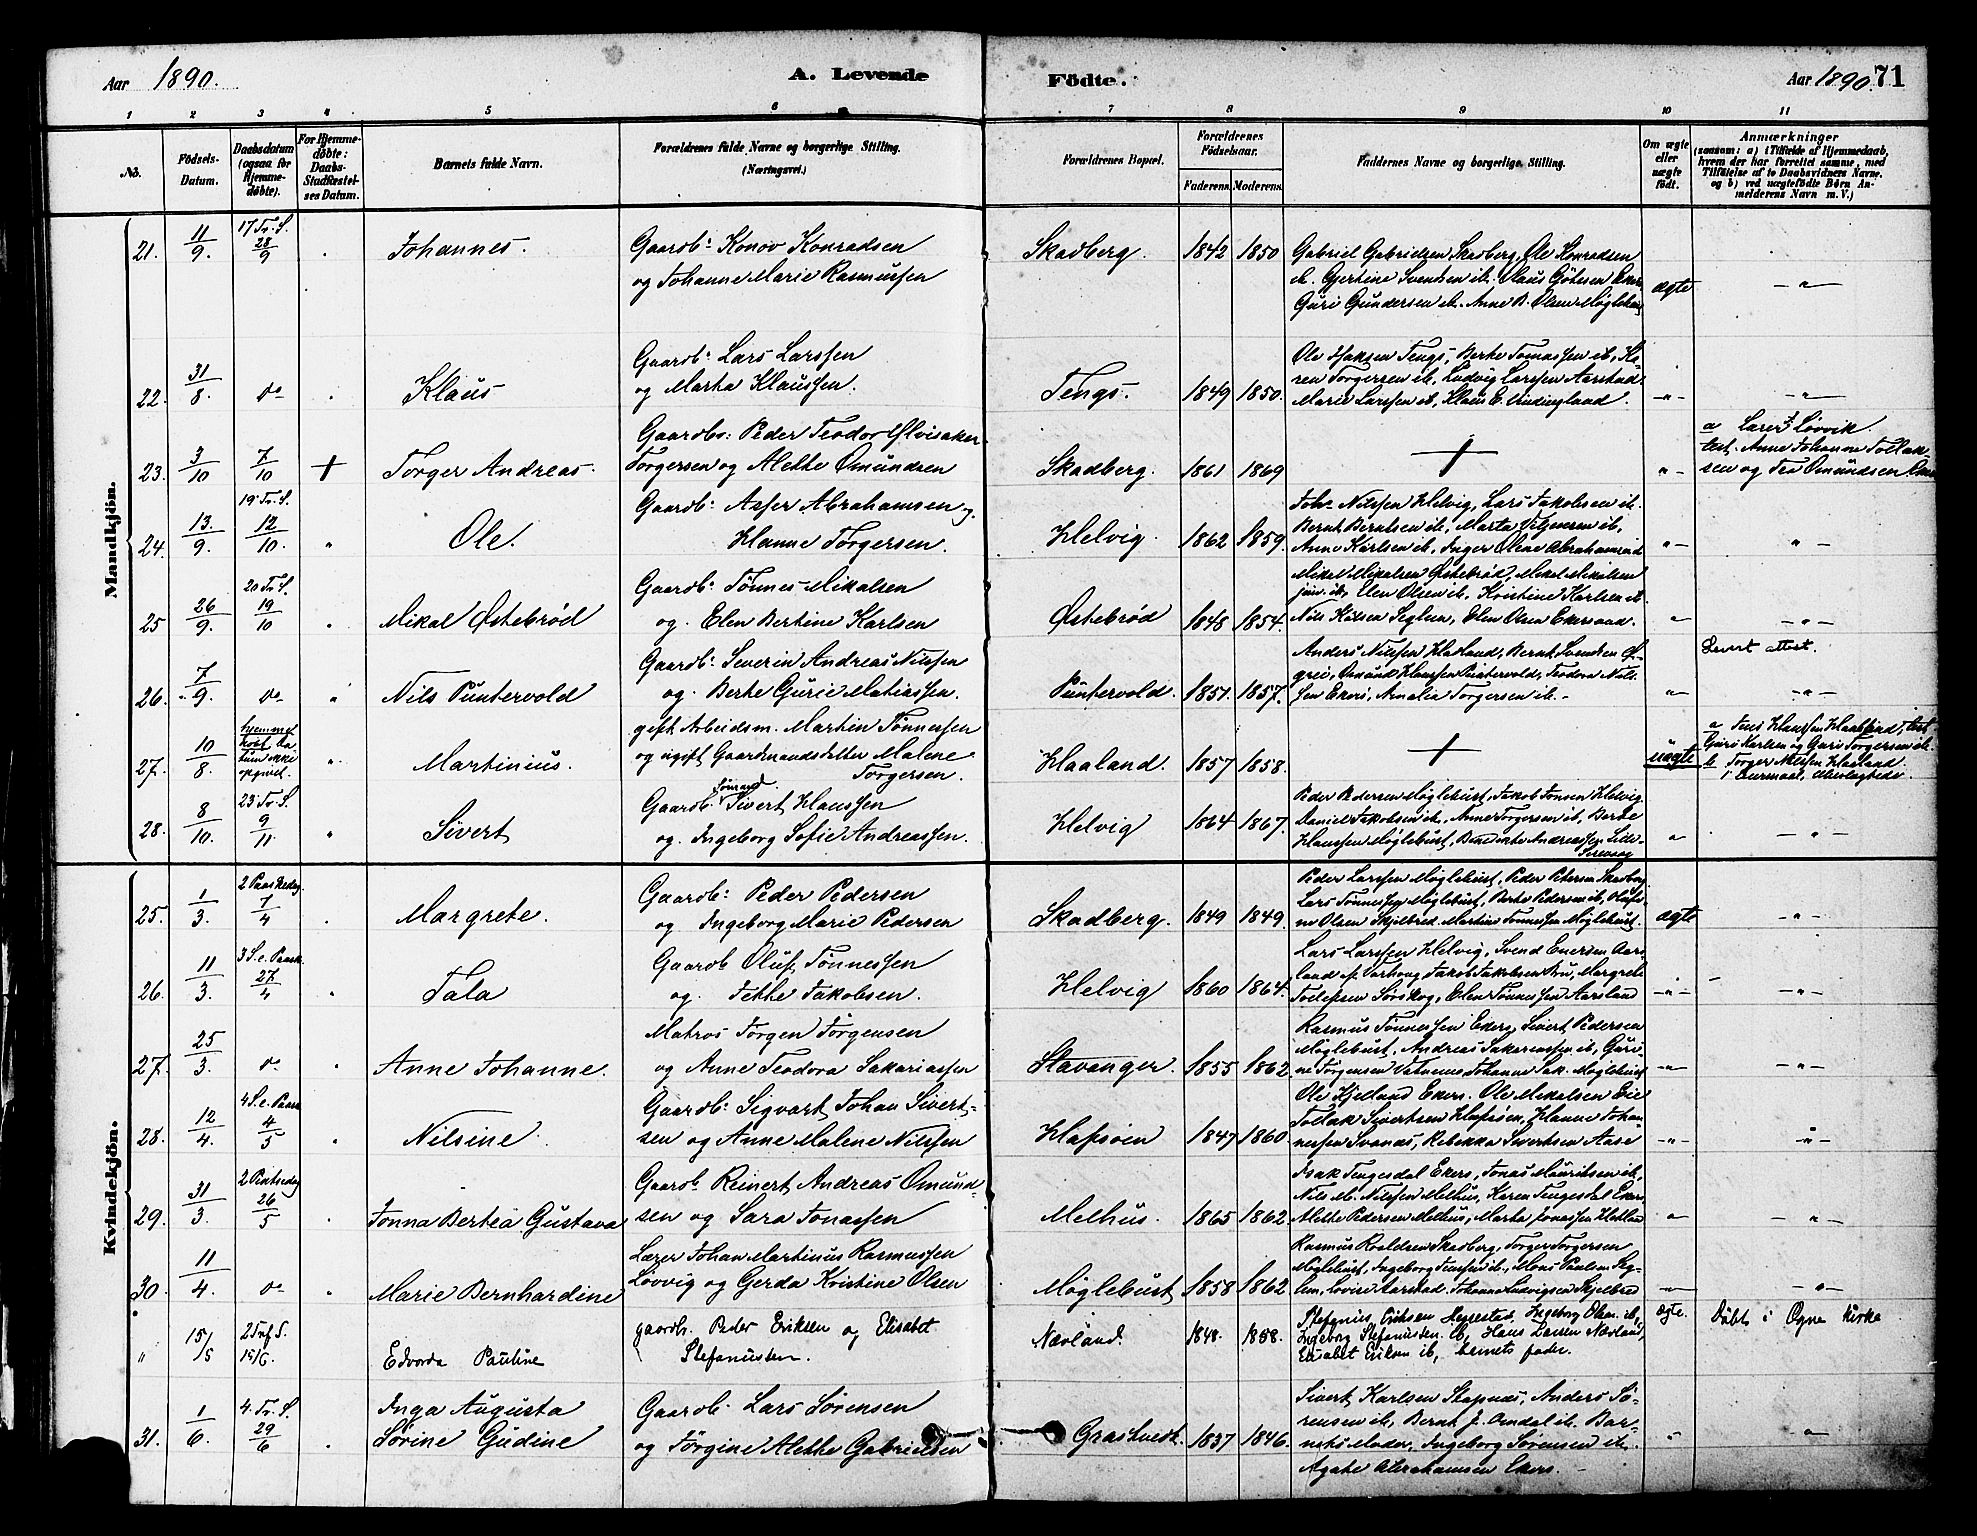 Aar 1890. A. Levende Födte. Aar 1890. 71
1 2 3 4 5 6 7 8 9 10 11
No. Födsels-Datum. Daabsdatum (ogsaa for Hjemmedøbte). For Hjemmedøbte: Daabs-Stadfæstelses Datum. Barnets fulde Navn. Forældrenes fulde Navne og borgerlige Stilling. (Næringsvei.) Forældrenes Bopæl. Forældrenes Födselsaar. Faderens. Moderens. Faddernes Navne og borgerlige Stilling. Om ægte eller uægte født. Anmærkninger (saasom: a) i Tilfælde af Hjemmedaab, hvem der har forrettet samme, med Tilföielse af to Daabsvidners Navne, og b) ved uægtefödte Börn Anmelderens Navn m. V.)
Mandkjön.
21. 11/9. 17 Tr. S. 28/9 Johannes. Gaardb: Konov Konradsen
og Johanne Marie Rasmussen Skadberg. 1842 1850
Gabriel Gabrielsen Skadberg, Ole Konradsen
ib. Gjertine Svendsen ib. Olaus
Guri Gundersen ib. Anne B. Olsen Møglebust ægte -"-
22. 31/8 do Klaus Gaardb: Lars Larssen
og Marta Klaussen. Tengs. 1849 1850.
Ole Isaksen Tengs, Berte Tomassen ib, Ka-
ren Torgersen ib, Ludvig Larssen Aarstad.
Marie Larssen ib, Klaus E. -"- -"-
23. 3/10 7/10 + Torger Andreas. Gaardbr: Peder Teodor
Torgersen og Alette Omundsen Skadberg. 1861 1869 + -"-
a Lærer Løvvik
test. Anne Johanne Tollak-
sen og Tea Omundsen
24. 13./9. 19 Tr. S. 12/10. " Ole. Gaardb: Asser Abrahamsen og
Hanne Torgersen. Helvig. 1862 1859.
Nilssen Helvig, Lars Jakobsen ib.
Bernt Berntsen ib, Marta ib,
Anne Karlsen ib, Inger Oline Abrahamsen -"- "-
25 26/9. 20 Tr. S. 19/10 Mikal Østebrød Gaardb: Tönnes Mikalsen
og. Elen Bertine Karlsen Østebrød 1848 1854.
Mikal Mikalsen Østebrød, Mikal Mikalsen
jun. ib, Elen Olsen ib. Kristine Karlsen ib
Nils Olsen Seglem, Elen Olsen Ekersund. -"-
26. 7/9. do " Nils Puntervold Gaardb: Severin Andreas Nilssen
og. Berte Gurie Matiassen. Puntervold. 1851. 1857.
Anders Nilssen Haaland, Bernt Svendsen
Omund Klaussen Puntervold, Teodora Nils-
sen Ekers, Amalia Torgersen ib. -"- -"-
27. 10/8. hjemme
døbt da-
tum ikke
opgivet. " Martinius. gift Arbeidsm. Martin Tönnessen
og ugift Gaardmandsdatter Malene
Torgersen. Haaland. 1857 1858. + uægte
a Hanssen Haaland, test.
Guri Karlsen og Guri Torgersen ib.
b Torger Nilssen Haaland.
28. 8/10. 23 Tr. S. 9/11. " Sivert Gaardb Sivert Hanssen
og. Ingeborg Sofie Andreassen. Helvig 1864 1867.
Peder Pedersen Møglebust, Jakob Jonsen Helvig
Daniel Jakobsen ib, Anne Torgersen ib, Berte
Hanssen Møglebust, Benedikte Andreassen Lille-
Sirevaag " -"-
Kvindekjön.
25. 1/3. 2 Paaskedag 7/4 Margrete. Gaardb: Peder Pedersen
og Ingeborg Marie Pedersen Skadberg. 1849 1849.
Peder Larssen Møglebust, Peder Petersen Skadberg
Lars Tönnessen Møglebust, Berte Pedersen ib,
Olsen Skjelbred. Martine Tönnessen Møglebust. ægte -"-
26. 11/3. 3 S. e. Paask 27/4 Tala Gaardb Oluf Tönnessen
og. Jette Jakobsen. Helvig 1860 1864.
Lars Larssen Helvig, Svend Enersen Aars-
land p. Varhaug, Jakob Jakobsen Bru, Margrete
Sørskog, Elen Tönnessen Aarsland -"- -"-
27. 25/3. do Anne Johanne. Matros Jörgen Jörgensen
og Anne Teodora Sakariassen Stavanger. 1855 1862.
Rasmus Tönnessen Ekers, Sivert Pedersen
Møglebust, Andreas Sakariassen ib, Guri-
ne Jörgensen Johanne Sak. Møglebust -"- -"-
28. 12/4. 4 S. e. Paas 4/5 Nilsine Gaardb: Sigvart Johan Sivert-
sen og Anne Malene Nilssen Hafsöen 1847 1860
Ole Hjelland Ekers. Ole Mikalsen Eie
Tollak Sivertsen Hafsöen, Hanne Johan-
nessen Svanæs, Rebekka Sivertsen Aase -"- "
29. 31/3. 2 Pintsedag 26/5 Jonna Bertea Gustava Gaardb Reinert Andreas Omund-
sen og Sara Jonassen Melhus. 1865 1862
Isak Tengesdal Ekers, Jonas Mauritsen ib,
Nils M. Nilssen Melhus, Karen Tengesdal Ekers
Alette Pedersen Melhus, Marta Jonassen Hetland -"- -"-
30. 11/4. do " Marie Bernhardine Lærer Johan Martinus Rasmussen
Lövvig og Gerda Kristine Olsen Møglebust 1858 1862
Rasmus Roaldsen Skadberg, Torger Torgersen
Møglebust, Ingeborg ib, Mons Paulsen Seg-
lem, Lovise Aarstad. Johanne Ludvigsen Skjelbred -"- -"-
" 15/5 2 S. 15/6. Edvarda Pauline gaardb. Peder Eriksen og Elisabet
Stefanussen. Nævland. 1848. 1858.
Stefanius Eriksen Hegrestad, Ingeborg Olsen ib,
Ingeborg Stefanussen ib, Hans Larsen Nævland,
Elisabet Eriksen ib, barnets fader. ægte. Døbt i Ogne Kirke
31. 1/6. 4. Tr. S. 29/6 Inga Augusta
Sörine Gudine Gaardb. Lars Sörensen
og Törgine Alette Gabrielsen Grastveit. 1837 1846.
Sivert Karlsen Stapnæs, Anders Sö-
rensen ib, Bernt J. Omdal ib. Bar-
nets Moder, Ingeborg Sörensen ib.
Agate Abrahamsen Ekers. -"-